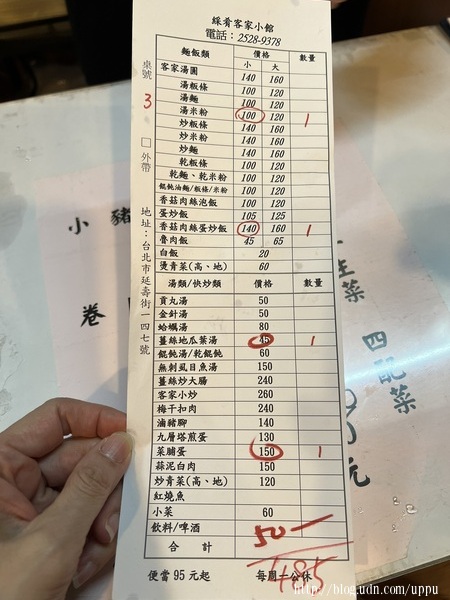 綵肴客家小館
電話：2528-9378
桌號 3 □外帶 地址：台北市延壽街一四七號
麵飯類 價格 數量
小 大
客家湯圓 140 160
湯粄條 100 120
湯麵 100 120
湯米粉 100 120 1
炒粄條 140 160
炒米粉 140 160
炒麵 140 160
乾粄條 100 120
乾麵、乾米粉 100 120
餛飩油麵/粄條/米粉 100 120
香菇肉絲泡飯 100 120
蛋炒飯 105 125
香菇肉絲蛋炒飯 140 160 1
魯肉飯 45 65
白飯 20
燙青菜(高、地) 60
湯類/快炒類 價格 數量
貢丸湯 50
金針湯 50
蛤蠣湯 80
薑絲地瓜葉湯 45 1
餛飩湯/乾餛飩 60
無刺虱目魚湯 150
薑絲炒大腸 240
客家小炒 260
梅干扣肉 240
滷豬腳 140
九層塔煎蛋 130
菜脯蛋 150 1
蒜泥白肉 150
炒青菜(高、地) 120
紅燒魚
小菜 60
飲料/啤酒 50
合計 485
便當 95 元起 每週一公休
小 豬
卷
生菜
四配菜
元
http://blog.udn.com/uppu